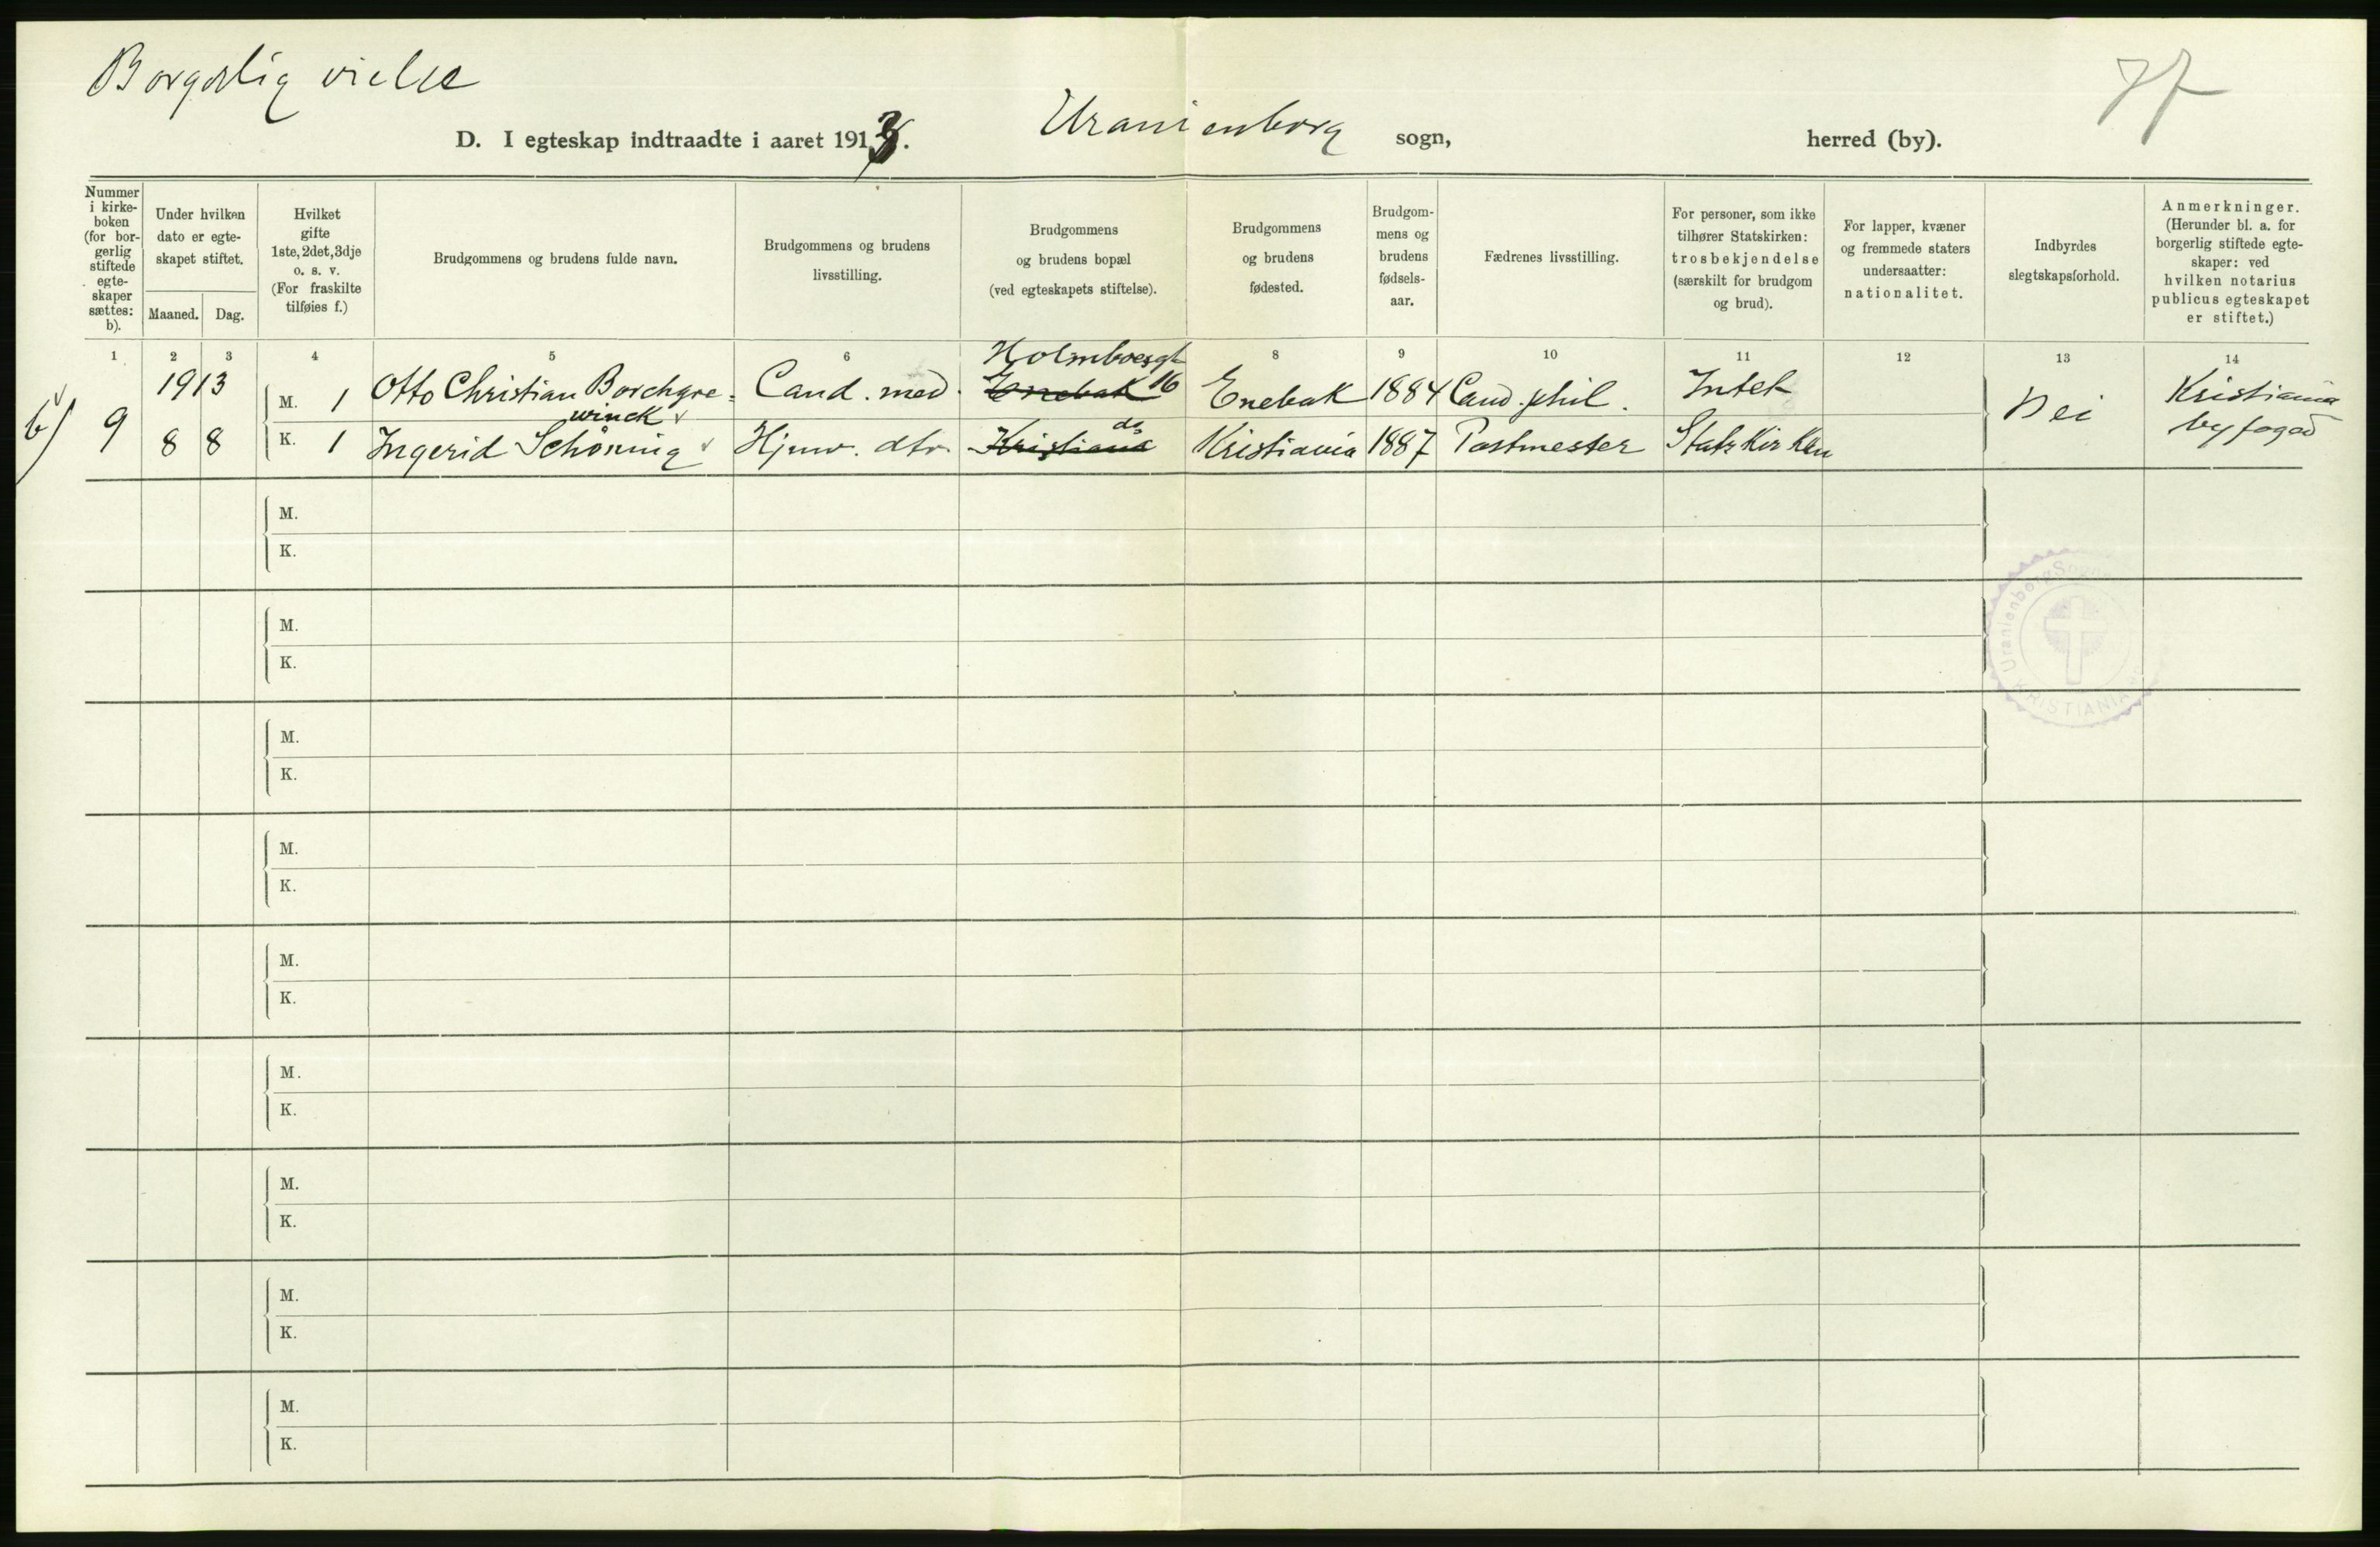 Borgerlig vielse
77
D. I egteskap indtraadte i aaret 1913. Uranienborg sogn, herred (by).
Nummer
i kirke-
boken
(for bor-
gerlig
stiftede
egte-
skaper
sættes:
b).
Under hvilken
dato er egte-
skapet stiftet.
Maaned. Dag.
Hvilket
gifte
1ste, 2det, 3dje
o. s. v.
(For fraskilte
tilføies f.)
Brudgommens og brudens fulde navn.
Brudgommens og brudens
livsstilling.
Brudgommens
og brudens bopæl
(ved egteskapets stiftelse).
Brudgommens
og brudens
fødested.
Brudgom-
mens og
brudens
fødsels-
aar.
Fædrenes livsstilling.
For personer, som ikke
tilhører Statskirken:
trosbekjendelse
(særskilt for brudgom
og brud).
For lapper, kvæner
og fremmede staters
undersaatter:
nationalitet.
Indbyrdes
slegtskapsforhold.
Anmerkninger.
(Herunder bl. a. for
borgerlig stiftede egte-
skaper: ved
hvilken notarius
publicus egteskapet
er stiftet.)
1 2 3 4 5 6 7 8 9 10 11 12 13 14
Holmboesgt
1913 M. 1 Otto Christian Borchgre- Cand. med. Enebak 16 Enebak 1884 Cand. phil. Intet Nei Kristiania
winck
do
b) 9 8 8 K. 1 Ingerid Schöning Hjmv. dtr. Kristiania Kristiania 1887 Postmester Statskirken byfoged
M.
K.
M.
K.
M.
K.
M.
K.
M.
K.
M.
K.
M.
K.
M.
K.
M.
K.
Uranienborg
KRISTIANIA